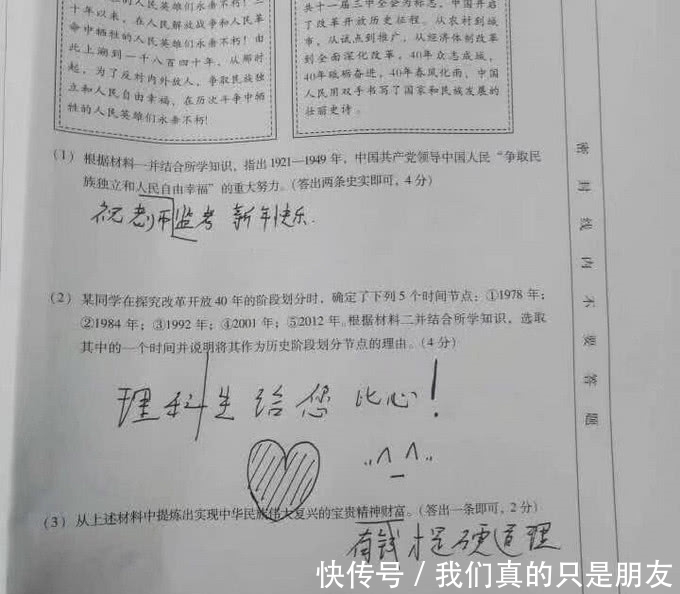 的人民英雄们永垂不朽！三
十年以来，在人民解放战争和人民革
命中牺牲的人民英雄们永垂不朽！由
此上溯到一千八百四十年，从那时
起，为了反对内外敌人，争取民族独
立和人民自由幸福，在历次斗争中牺
牲的人民英雄们永垂不朽！
共十一届三中全会为标志，中国开启
了改革开放历史征程。从农村到城
市，从试点到推广，从经济体制改革
到全面深化改革，40年众志成城，
40年砥砺奋进，40年春风化雨，中国
人民用双手书写了国家和民族发展的
壮丽史诗。
(1) 根据材料一并结合所学知识，指出1921—1949年，中国共产党领导中国人民“争取民
族独立和人民自由幸福”的重大努力。(答出两条史实即可，4分)
祝老师监考 新年快乐.
(2) 某同学在探究改革开放40年的阶段划分时，确定了下列5个时间节点：①1978年；
②1984年；③1992年；④2001年；⑤2012年。根据材料二并结合所学知识，选取
其中的一个时间并说明将其作为历史阶段划分节点的理由。(4分)
理科生给您 比心！
(3) 从上述材料中提炼出实现中华民族伟大复兴的宝贵精神财富。(答出一条即可，2分)
有钱才是硬道理
密封线内不要答题
快传号 / 我们真的只是朋友